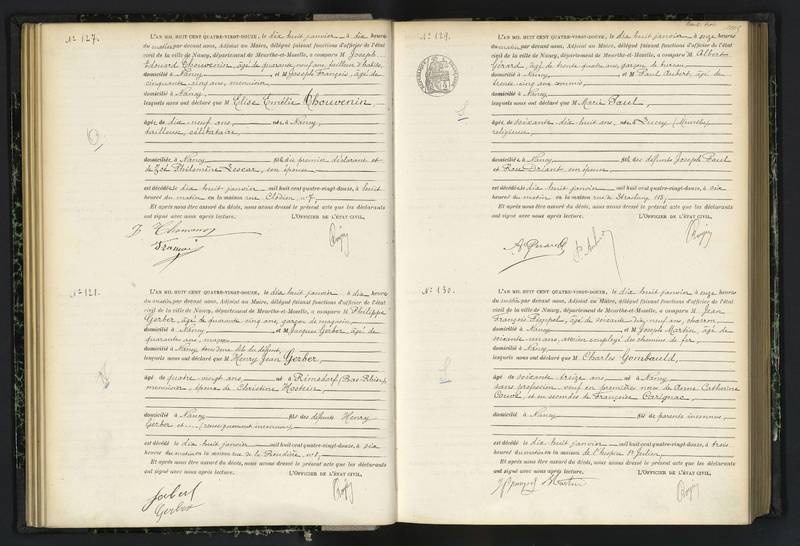 N° 127.
L'AN MIL HUIT CENT QUATRE-VINGT-DOUZE, le dix huit janvier à dix heures
du matin par devant nous, Adjoint au Maire, délégué faisant fonctions d'officier de l'état
civil de la ville de Nancy, département de Meurthe-et-Moselle, a comparu M. Joseph
Edouard Thouvenin, âgé de quarante neuf ans, tailleur d'habits,
domicilié à Nancy, et M. Joseph François, âgé de
cinquante cinq ans, menuisier
domicilié à Nancy,
lesquels nous ont déclaré que M. Elise Emélie Thouvenin
âgée de dix neuf ans née à Nancy,
tailleuse, célibataire,
domiciliée à Nancy fille du premier déclarant et
de Zoé Philomène Lescar, son épouse
est décédée le dix huit janvier mil huit cent quatre-vingt-douze, à huit
heures du matin en la maison rue Clodion, n° 7,
Et après nous être assuré du décès, nous avons dressé le présent acte que les déclarants
ont signé avec nous après lecture. L'OFFICIER DE L'ÉTAT CIVIL,
L'AN MIL HUIT CENT QUATRE-VINGT-DOUZE, le dix huit janvier à dix heures
du matin par devant nous, Adjoint au Maire, délégué faisant fonctions d'officier de l'état
civil de la ville de Nancy, département de Meurthe-et-Moselle, a comparu M. Philippe
Gerber, âgé de quarante cinq ans, garçon de magasin,
domicilié à Nancy, et M. Jacques Gerber âgé de
quarante ans, maçon
domicilié à Nancy tous deux fils du défunt,
lesquels nous ont déclaré que M. Henry Jean Gerber,
âgé de quatre vingt ans, né à Rimsdorf (Bas-Rhin)
menuisier, époux de Christine Hostein,
domicilié à Nancy fils des défunts Henry
Gerber et .... (renseignement inconnu)
est décédé le dix huit janvier mil huit cent quatre-vingt-douze, à six
heures du matin en la maison rue de la n° 8,
Et après nous être assuré du décès, nous avons dressé le présent acte que les déclarants
ont signé avec nous après lecture. L'OFFICIER DE L'ÉTAT CIVIL,
Gerber
N° 129.
L'AN MIL HUIT CENT QUATRE-VINGT-DOUZE, le dix huit janvier, à onze heures
du matin, par devant nous, Adjoint au Maire, délégué faisant fonctions d'officier de l'état
civil de la ville de Nancy, département de Meurthe-et-Moselle, a comparu M. Albert
Gérard, âgé de trente quatre ans, garçon de bureau
domicilié à Nancy, et M. Paul Aubert, âgé de
trente cinq ans commis,
domicilié à Nancy
lesquels nous ont déclaré que M. Marie Paul,
âgée de soixante dix huit ans, née à Lucey (Meurthe)
religieuse,
domiciliée à Nancy fille des défunts Joseph Paul
et Rose Briant son épouse
est décédée le dix huit janvier mil huit cent quatre-vingt-douze, à six
heures du matin en la maison rue de Strasbourg 113,
Et après nous être assuré du décès, nous avons dressé le présent acte que les déclarants
ont signé avec nous après lecture. L'OFFICIER DE L'ÉTAT CIVIL,
N° 130.
L'AN MIL HUIT CENT QUATRE-VINGT-DOUZE, le dix huit janvier à onze heures
du matin, par devant nous, Adjoint au Maire, délégué faisant fonctions d'officier de l'état
civil de la ville de Nancy, département de Meurthe-et-Moselle, a comparu M. Jean
François âgé de soixante dix neuf ans, charron
domicilié à Nancy et M. Joseph Martin, âgé de
soixante un ans, ancien employé des chemins de fer,
domicilié à Nancy
lesquels nous ont déclaré que M. Charles Gombauld,
âgé de soixante treize ans, né à Nancy
sans profession veuf en premières noces de Anne Catherine
et en secondes de Françoise Carignac,
domicilié à Nancy fils de parents inconnus,
est décédé le dix huit janvier mil huit cent quatre-vingt-douze, à trois
heures du matin en la maison de l'hospice St Julien,
Et après nous être assuré du décès, nous avons dressé le présent acte que les déclarants
ont signé avec nous après lecture. L'OFFICIER DE L'ÉTAT CIVIL,
Martin